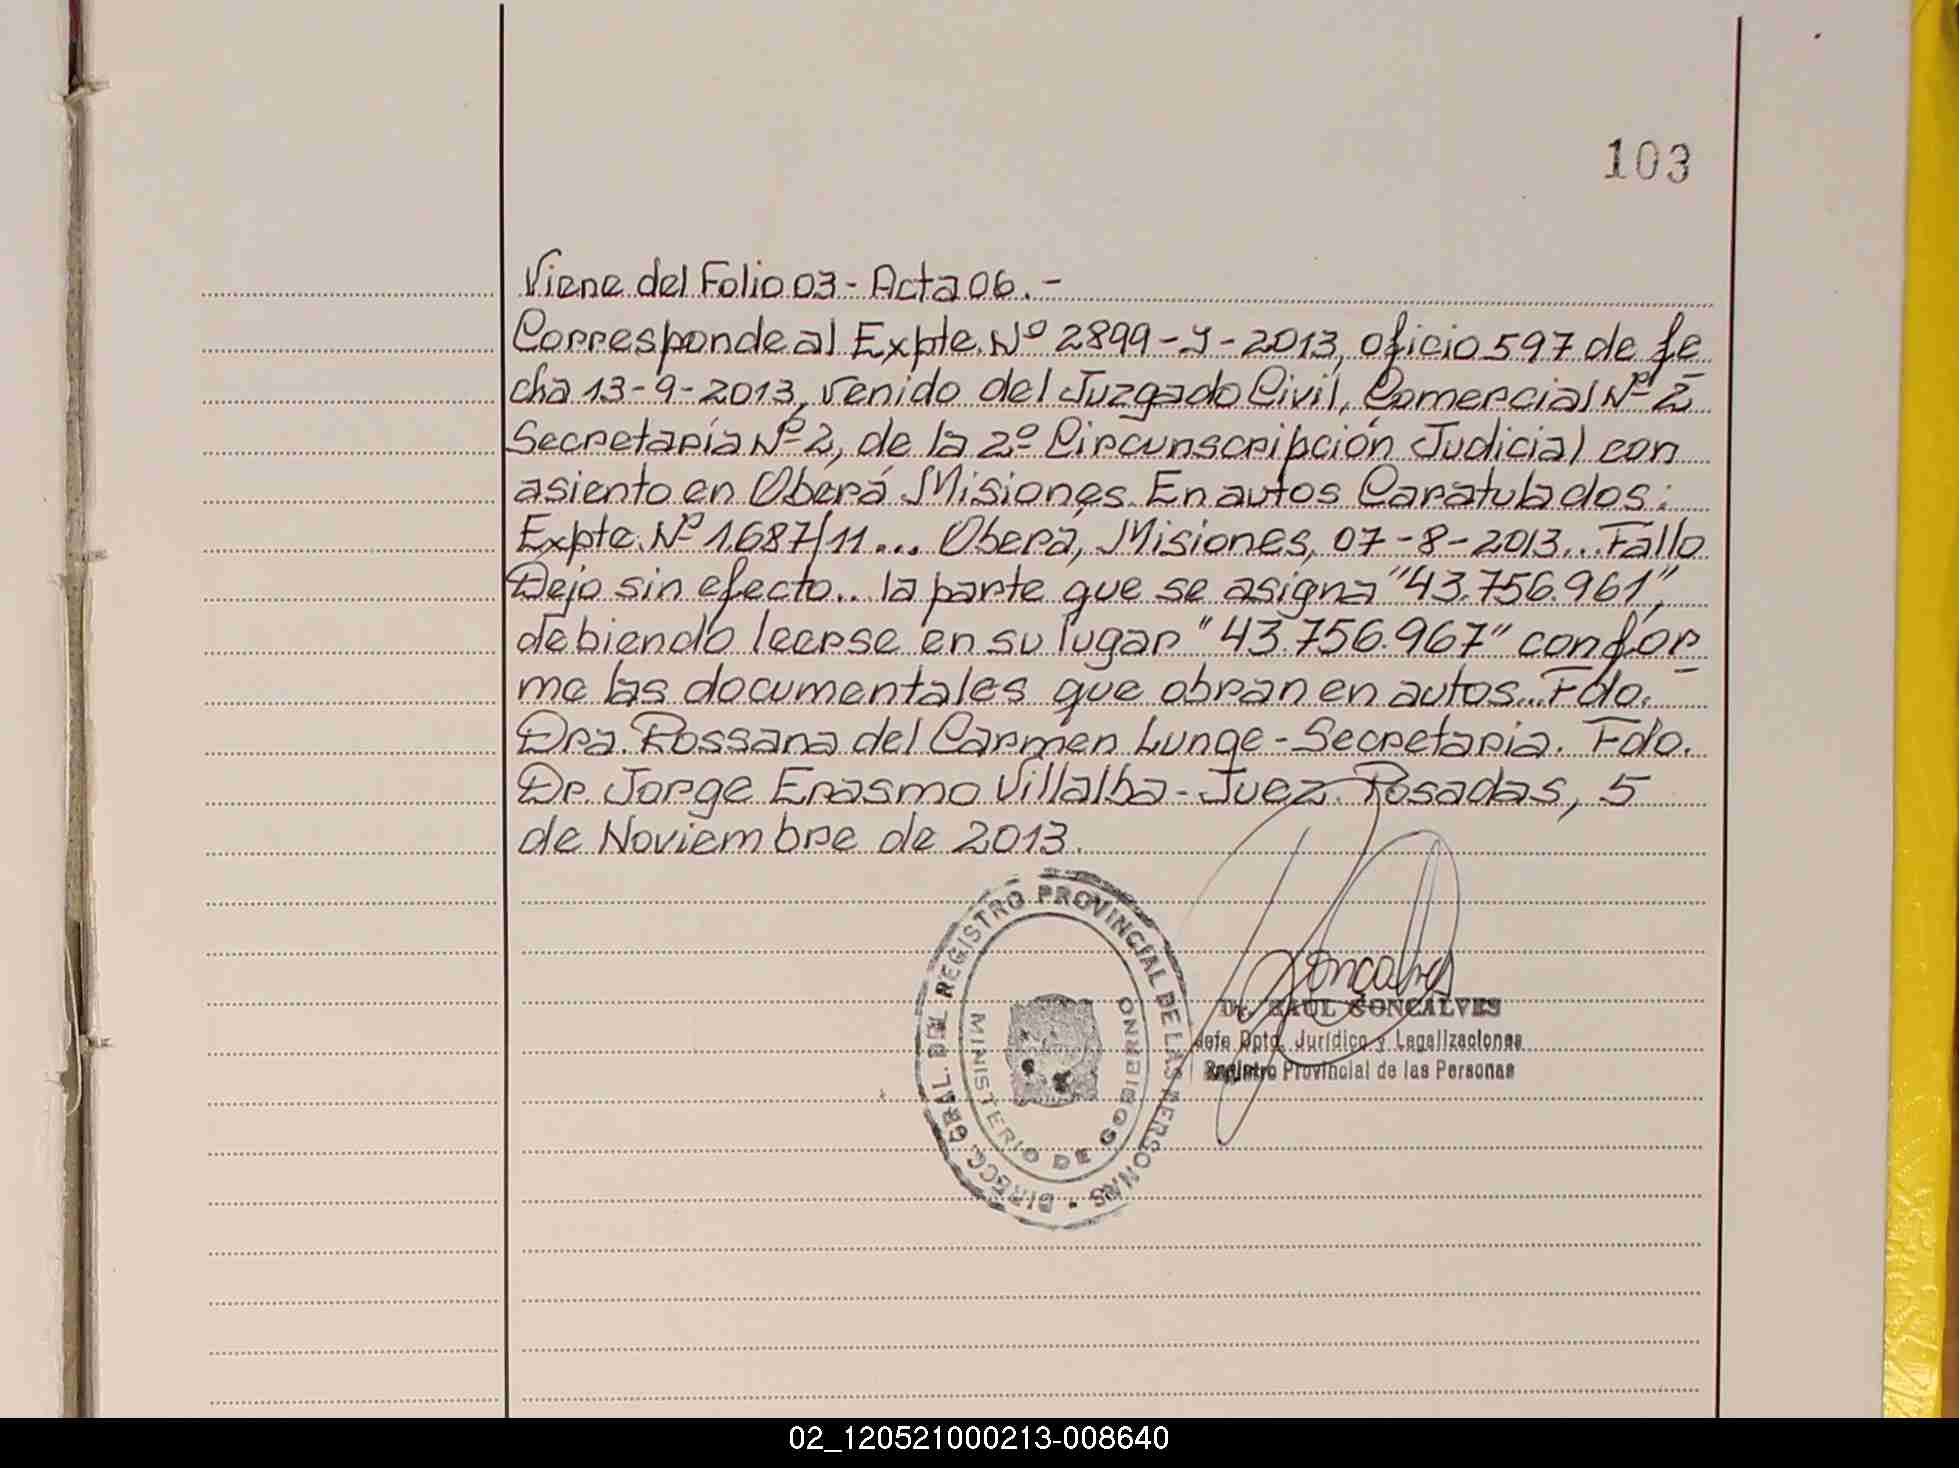 103
Viene del Folio 03 - Acta 06. -
Corresponde al Expte. Nº 2899-Y-2013, oficio 597 de fe
cha 13-9-2013, venido del Juzgado Civil, Comercial Nº 2
Secretaría Nº 2, de la 2º Circunscripción Judicial con
asiento en Oberá Misiones. En autos Caratulados:
Expte. Nº 1687/11... Oberá, Misiones, 07-8-2013... Fallo
Dejo sin efecto... la parte que se asigna "43.756.961",
debiendo leerse en su lugar "43.756.967" confor
me las documentales que obran en autos... Fdo.
Dra. Rossana del Carmen Lunge - Secretaria. Fdo.
Dr. Jorge Erasmo Villalba - Juez. Posadas, 5
de Noviembre de 2013.
DIRECC. GRAL. DEL REGISTRO PROVINCIAL DE LAS PERSONAS
MINISTERIO DE GOBIERNO
Goncalves
Dr. RAUL GONCALVES
Jefe Dpto. Jurídico y Legalizaciones
Registro Provincial de las Personas
02_120521000213-008640